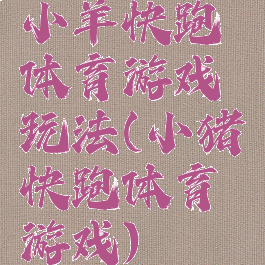 小羊快跑
体育游戏
玩法(小猪
快跑体育
游戏)